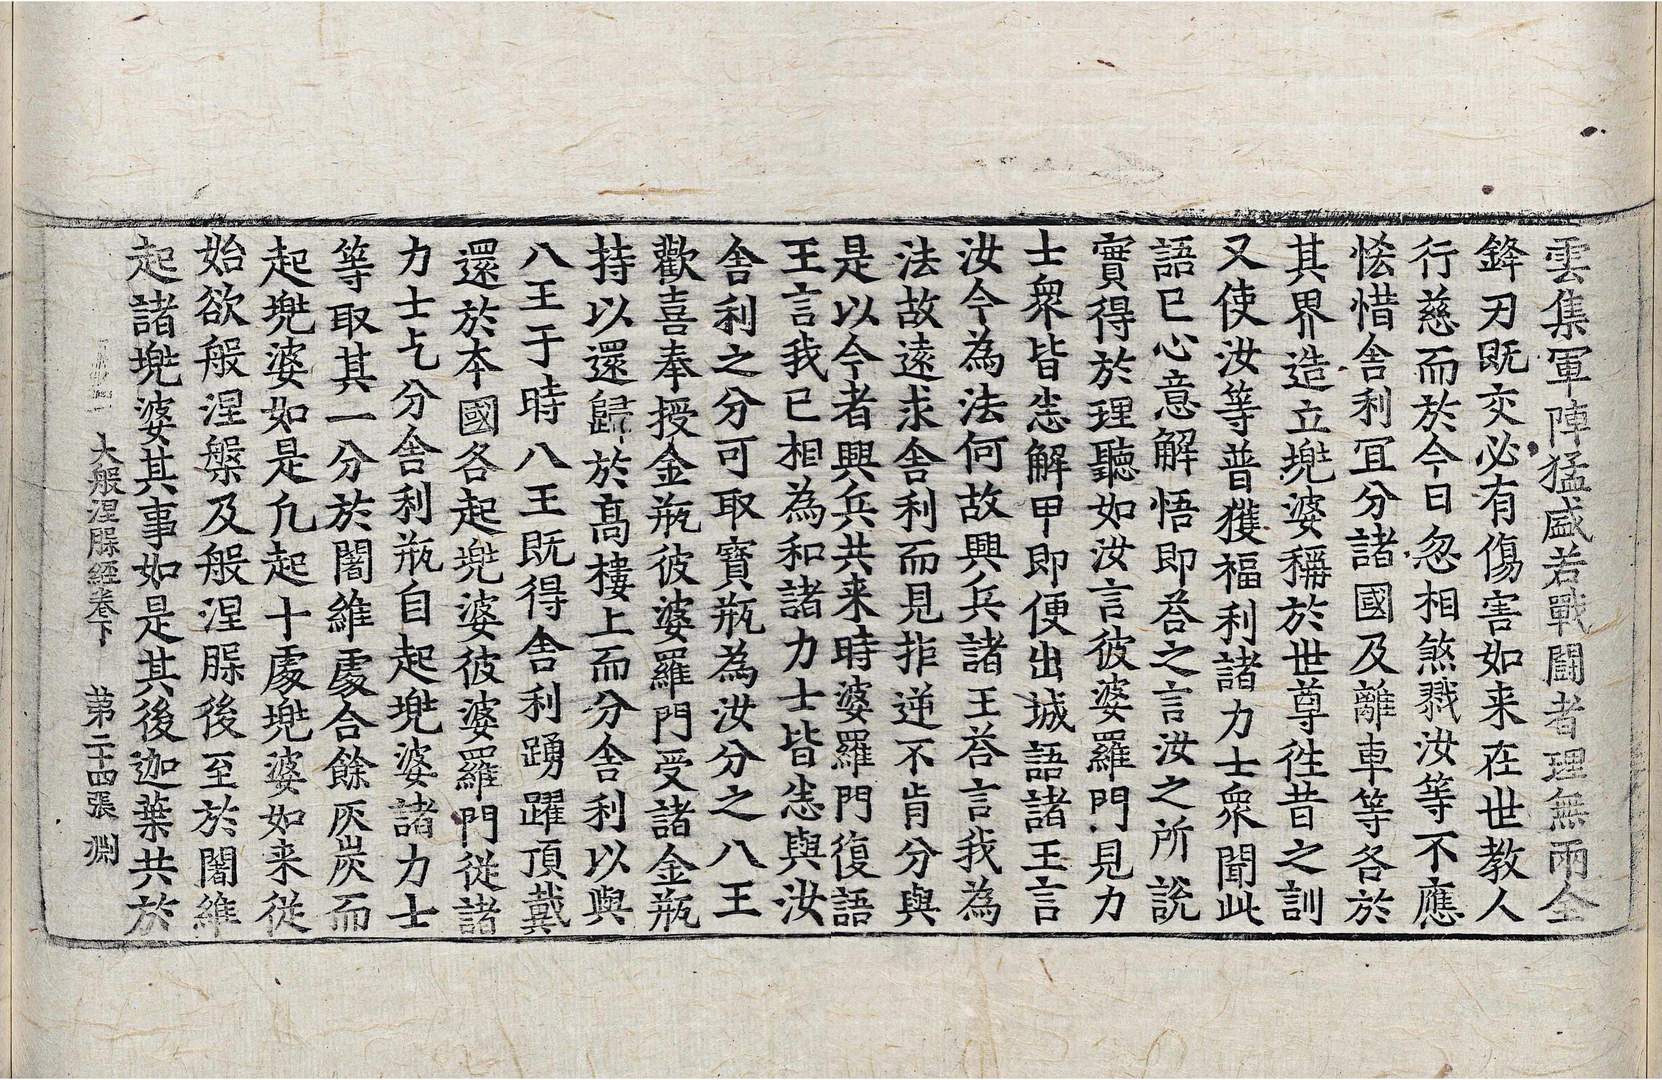 雲集軍陣猛盛若戰鬪者理無兩全
鋒刃既交必有傷害如来在世教人
行慈而於今日忽相煞戮汝等不應
恡惜舎利冝分諸國及離車等各於
其界造立兠婆稱於世尊徃昔之訓
又使汝等普獲福利諸力士衆聞此
語已心意解悟即荅之言汝之所説
實得於理聽如汝言彼婆羅門見力
士衆皆悉解甲即便出城語諸王言
汝今為法何故興兵諸王荅言我為
法故遠求舎利而見拒逆不肯分與
是以今者興兵共来時婆羅門復語
王言我已相為和諸力士皆悉與汝
舎利之分可取寳瓶為汝分之八王
歡喜奉授金瓶彼婆羅門受諸金瓶
持以還歸於髙樓上而分舎利以與
八王于時八王既得舎利踴躍頂戴
還於本國各起兠婆彼婆羅門從諸
力士乞分舎利瓶自起兠婆諸力士
等取其一分於闍維處合餘灰炭而
起兠婆如是凢起十處兠婆如来從
始欲般涅槃及般涅槃後至於闍維
起諸兠婆其事如是其後迦葉共於
大般涅槃經卷下 第二十四張 淵